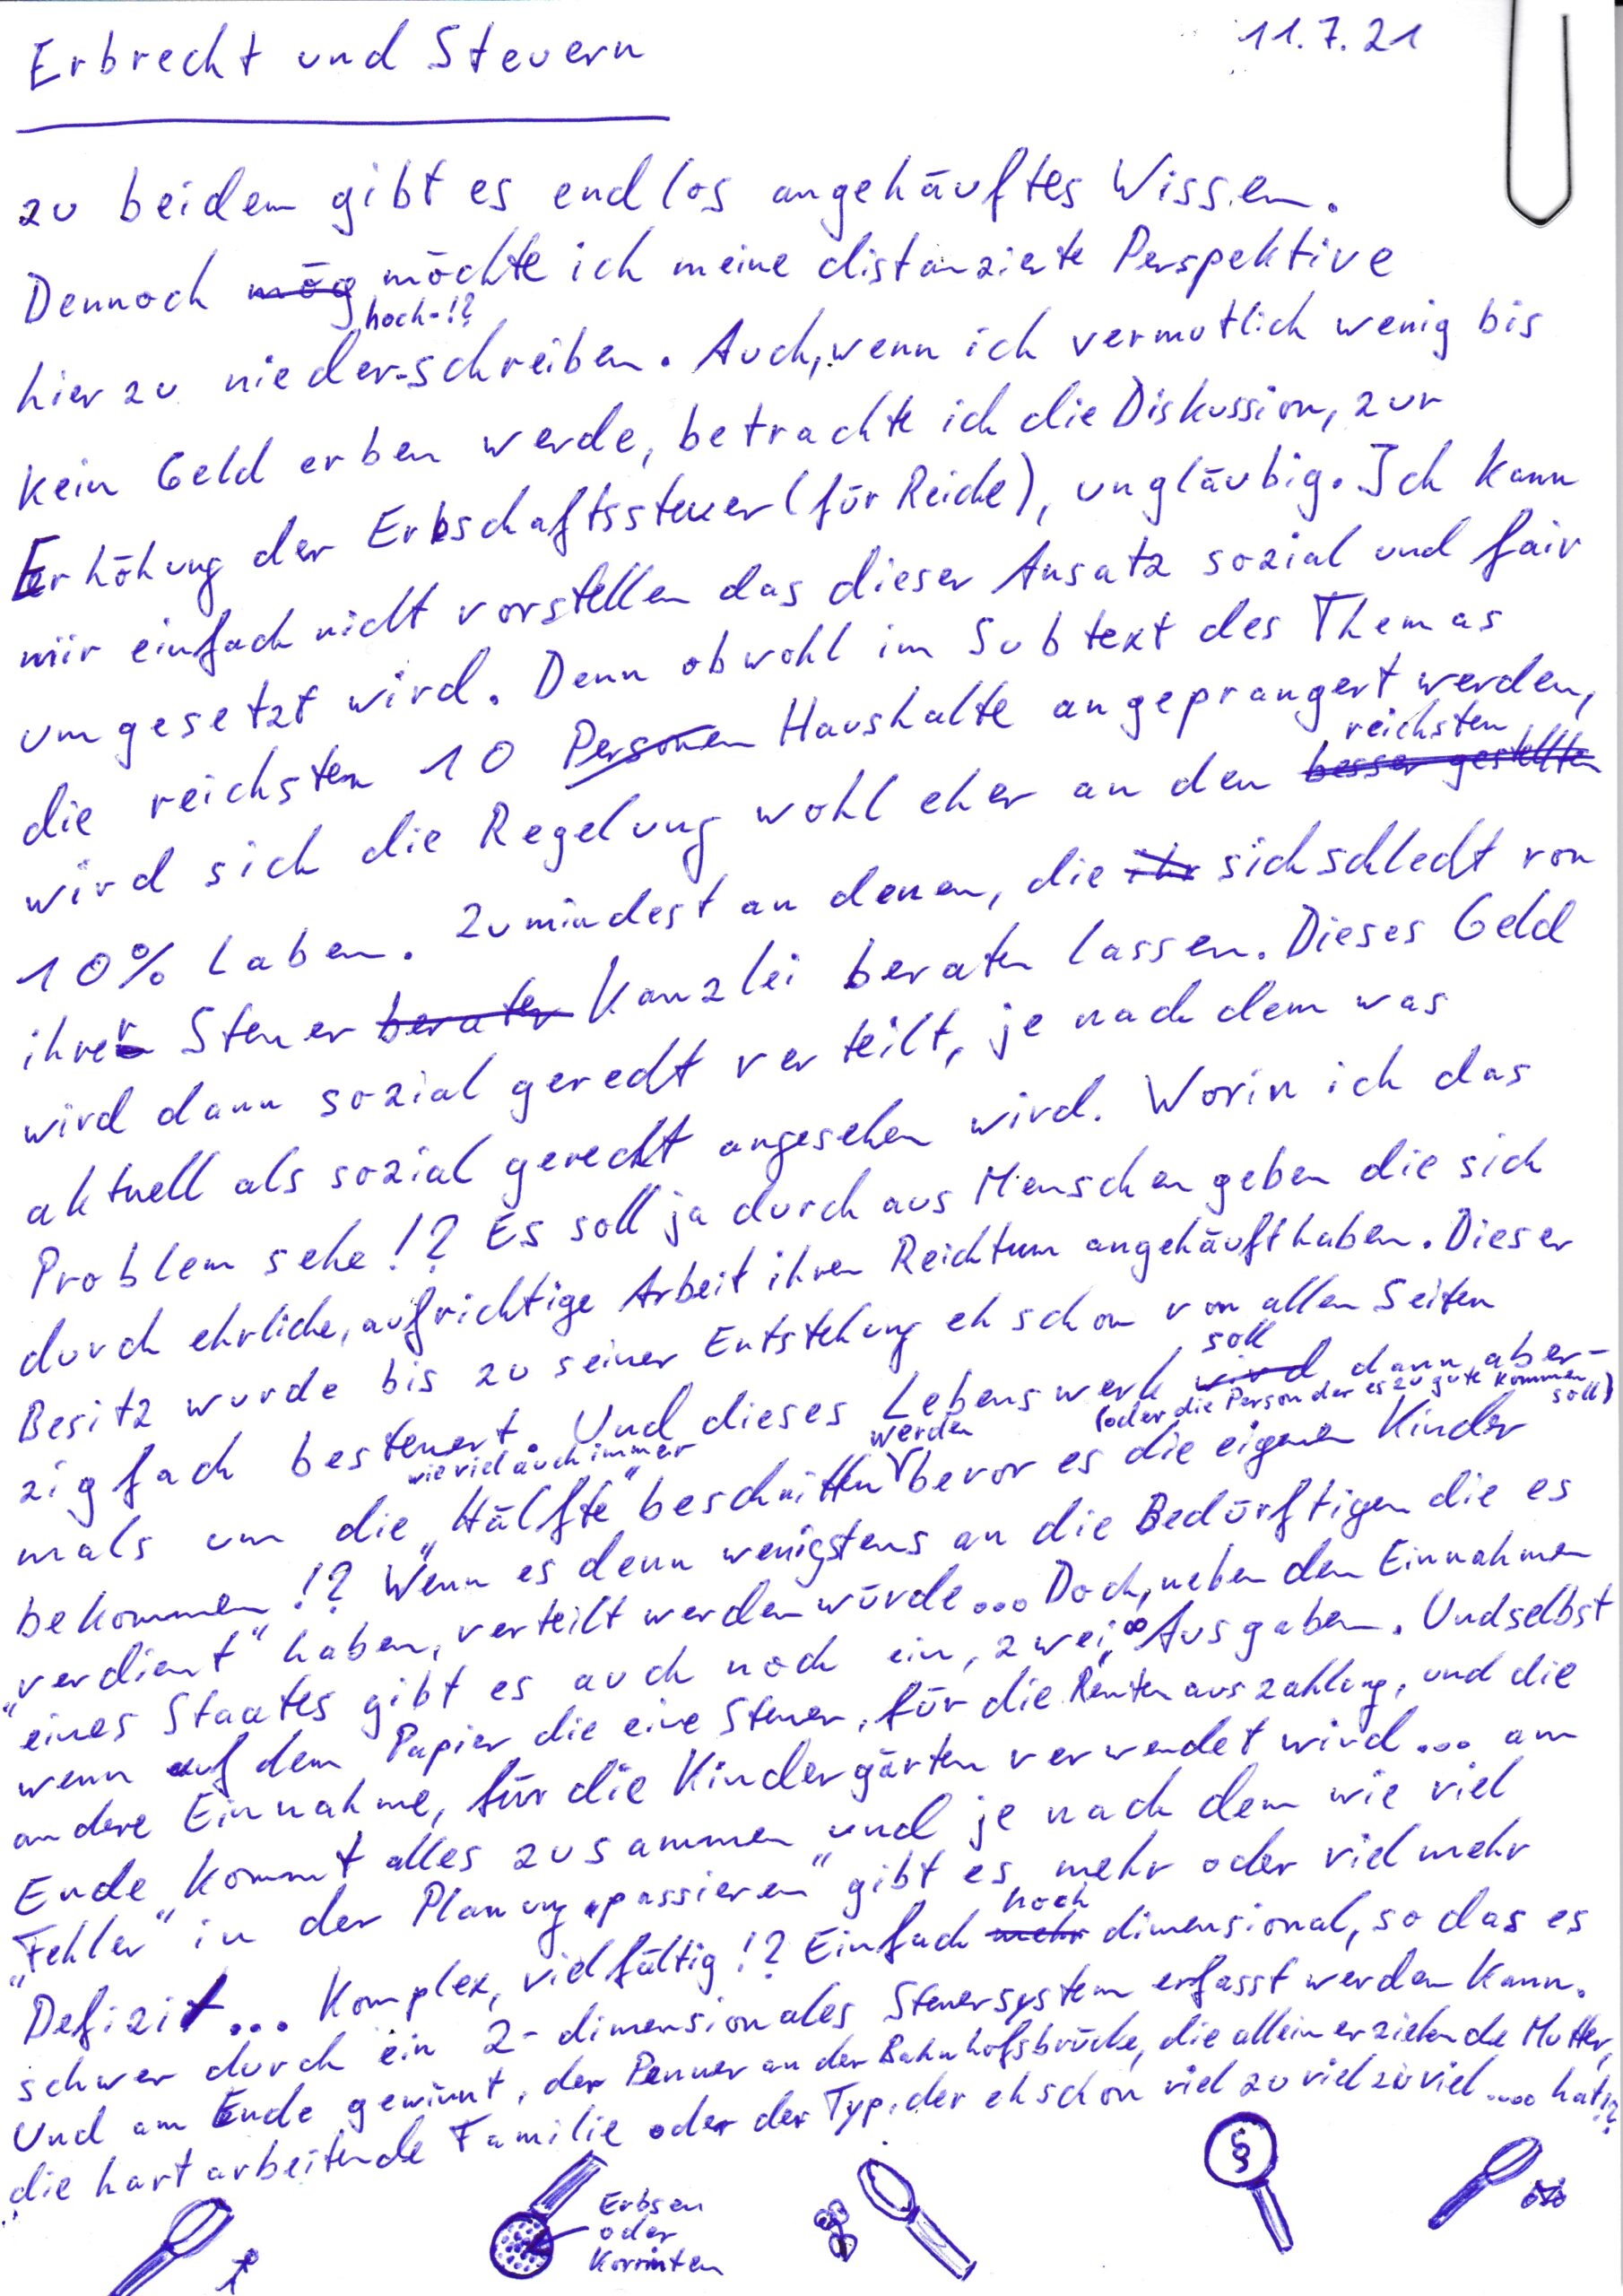 Erbrecht und Steuern
11.7.21
zu beidem gibt es endlos angehäuftes Wissen.
Dennoch mög möchte ich meine distanzierte Perspektive
hoch-!?
hierzu nieder-schreiben. Auch, wenn ich vermutlich wenig bis
kein Geld erben werde, betrachte ich die Diskussion, zur
Erhöhung der Erbschaftssteuer (für Reiche), ungläubig. Ich kann
mir einfach nicht vorstellen das dieser Ansatz sozial und fair
umgesetzt wird. Denn obwohl im Subtext des Themas
die reichsten 10 Personen Haushalte angeprangert werden,
reichsten
wird sich die Regelung wohl eher an den besser gestellten
10% laben. Zumindest an denen, die ihr sich schlecht von
ihrer Steuer berater Kanzlei beraten lassen. Dieses Geld
wird dann sozial gerecht verteilt, je nach dem was
aktuell als sozial gerecht angesehen wird. Worin ich das
Problem sehe!? Es soll ja durchaus Menschen geben die sich
durch ehrliche, aufrichtige Arbeit ihren Reichtum angehäuft haben. Dieser
Besitz wurde bis zu seiner Entstehung eh schon von allen Seiten
soll
zigfach besteuert. Und dieses Lebenswerk wird dann, aber-
wie viel auch immer werden (oder die Person der es zu gute kommen soll)
mals um die „Hälfte“ beschnitten bevor es die eigenen Kinder
bekommen!? Wenn es denn wenigstens an die Bedürftigen die es
„verdient“ haben, verteilt werden würde... Doch, neben den Einnahmen
eines Staates gibt es auch noch ein, zwei, ∞ Ausgaben. Und selbst
wenn auf dem Papier die eine Steuer, für die Rentenauszahlung, und die
andere Einnahme, für die Kindergärten verwendet wird... am
Ende kommt alles zusammen und je nach dem wie viel
„Fehler“ in der Planung „passieren“ gibt es mehr oder viel mehr
noch
Defizit... Komplex, vielfältig!? Einfach mehr dimensional, so das es
schwer durch ein 2-dimensionales Steuersystem erfasst werden kann.
Und am Ende gewinnt, der Penner an der Bahnhofsbrücke, die alleinerziehende Mutter,
die hart arbeitende Familie oder der Typ, der eh schon viel zu viel zu viel .... hat!?
§
Erbsen
oder
Korinten